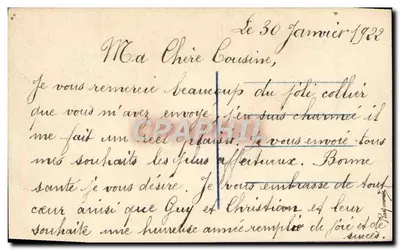 Le 30 Janvier 1922
Ma Chère Cousine,
Je vous remercie beaucoup du joli collier
que vous m'avez envoyé j'en suis charmée il
me fait un réel plaisir. Je vous envoie tous
mes souhaits les plus affectueux. Bonne
santé je vous désire. Je vous embrasse de tout
cœur ainsi que Guy et Christian et leur
souhaite une heureuse année remplie de joie et de
succès.